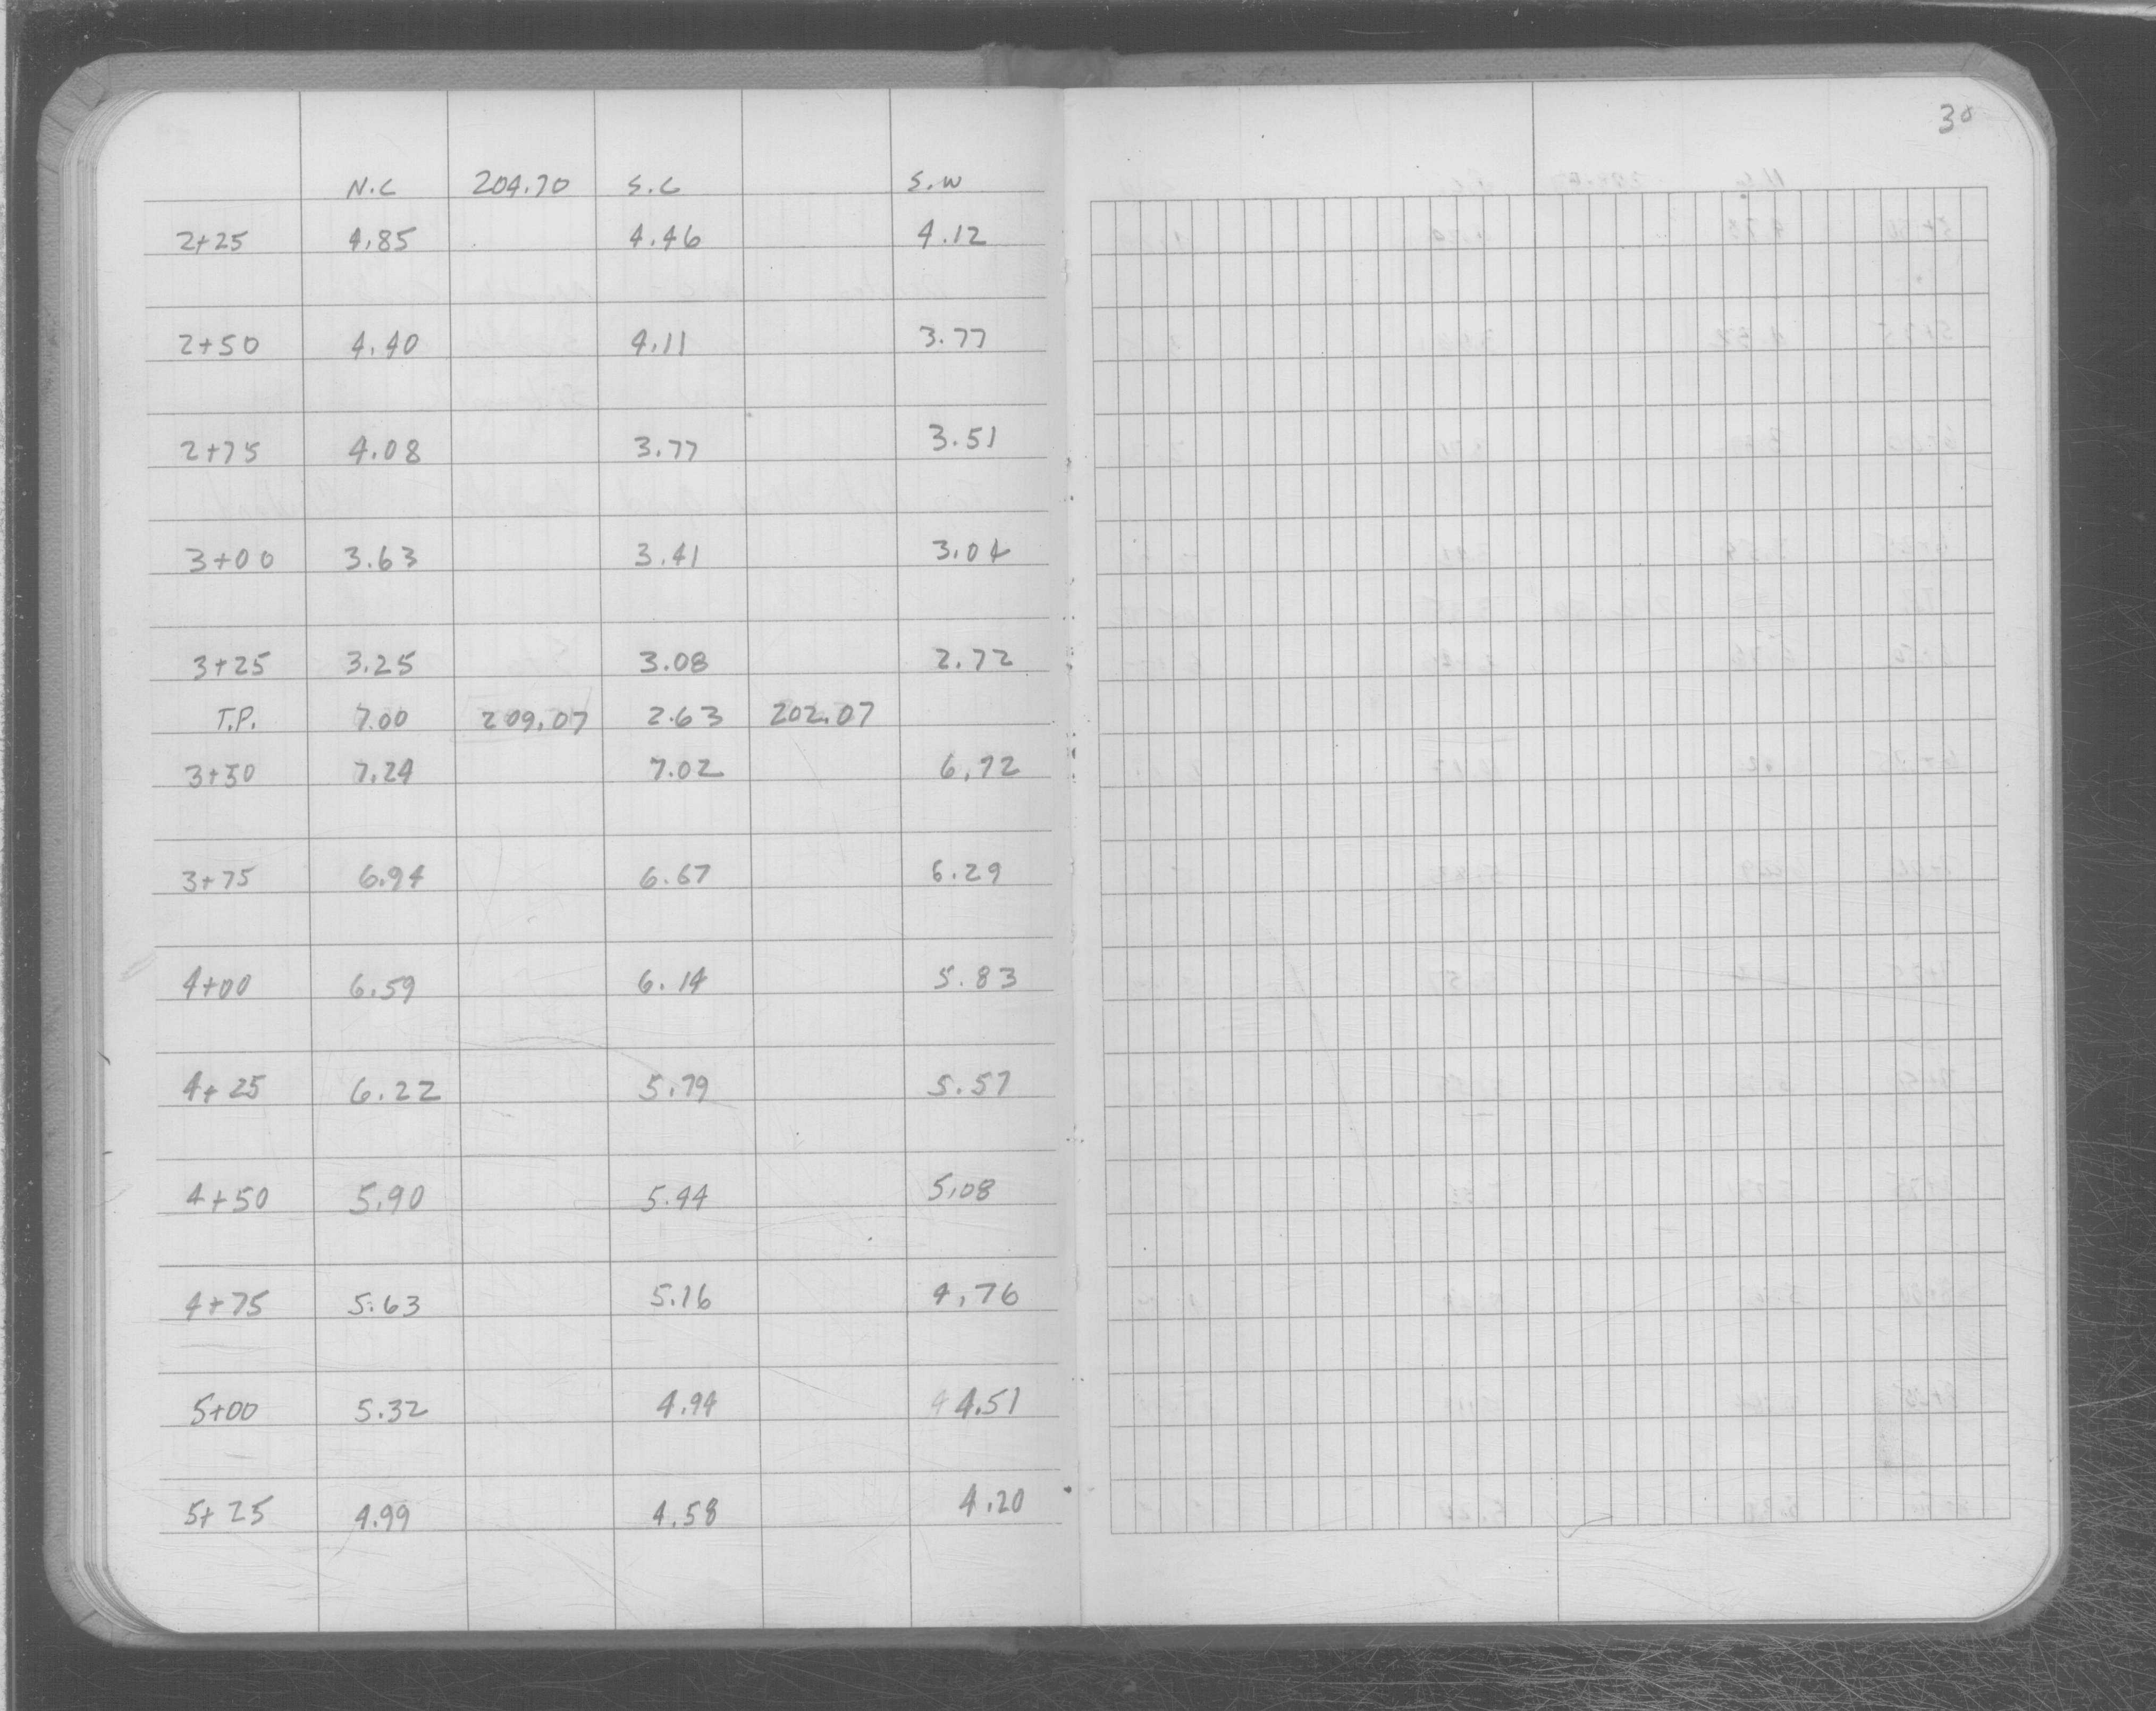 30
N.C 204.70 S.C S.W
2+25 4.85 4.46 4.12
2+50 4.40 4.11 3.77
2+75 4.08 3.77 3.51
3+00 3.63 3.41 3.04
3+25 3.25 3.08 2.72
T.P. 7.00 209.07 2.63 202.07
3+50 7.24 7.02 6.72
3+75 6.94 6.67 6.29
4+00 6.59 6.14 5.83
4+25 6.22 5.79 5.57
4+50 5.90 5.44 5.08
4+75 5.63 5.16 4.76
5+00 5.32 4.94 4.51
5+25 4.99 4.58 4.20